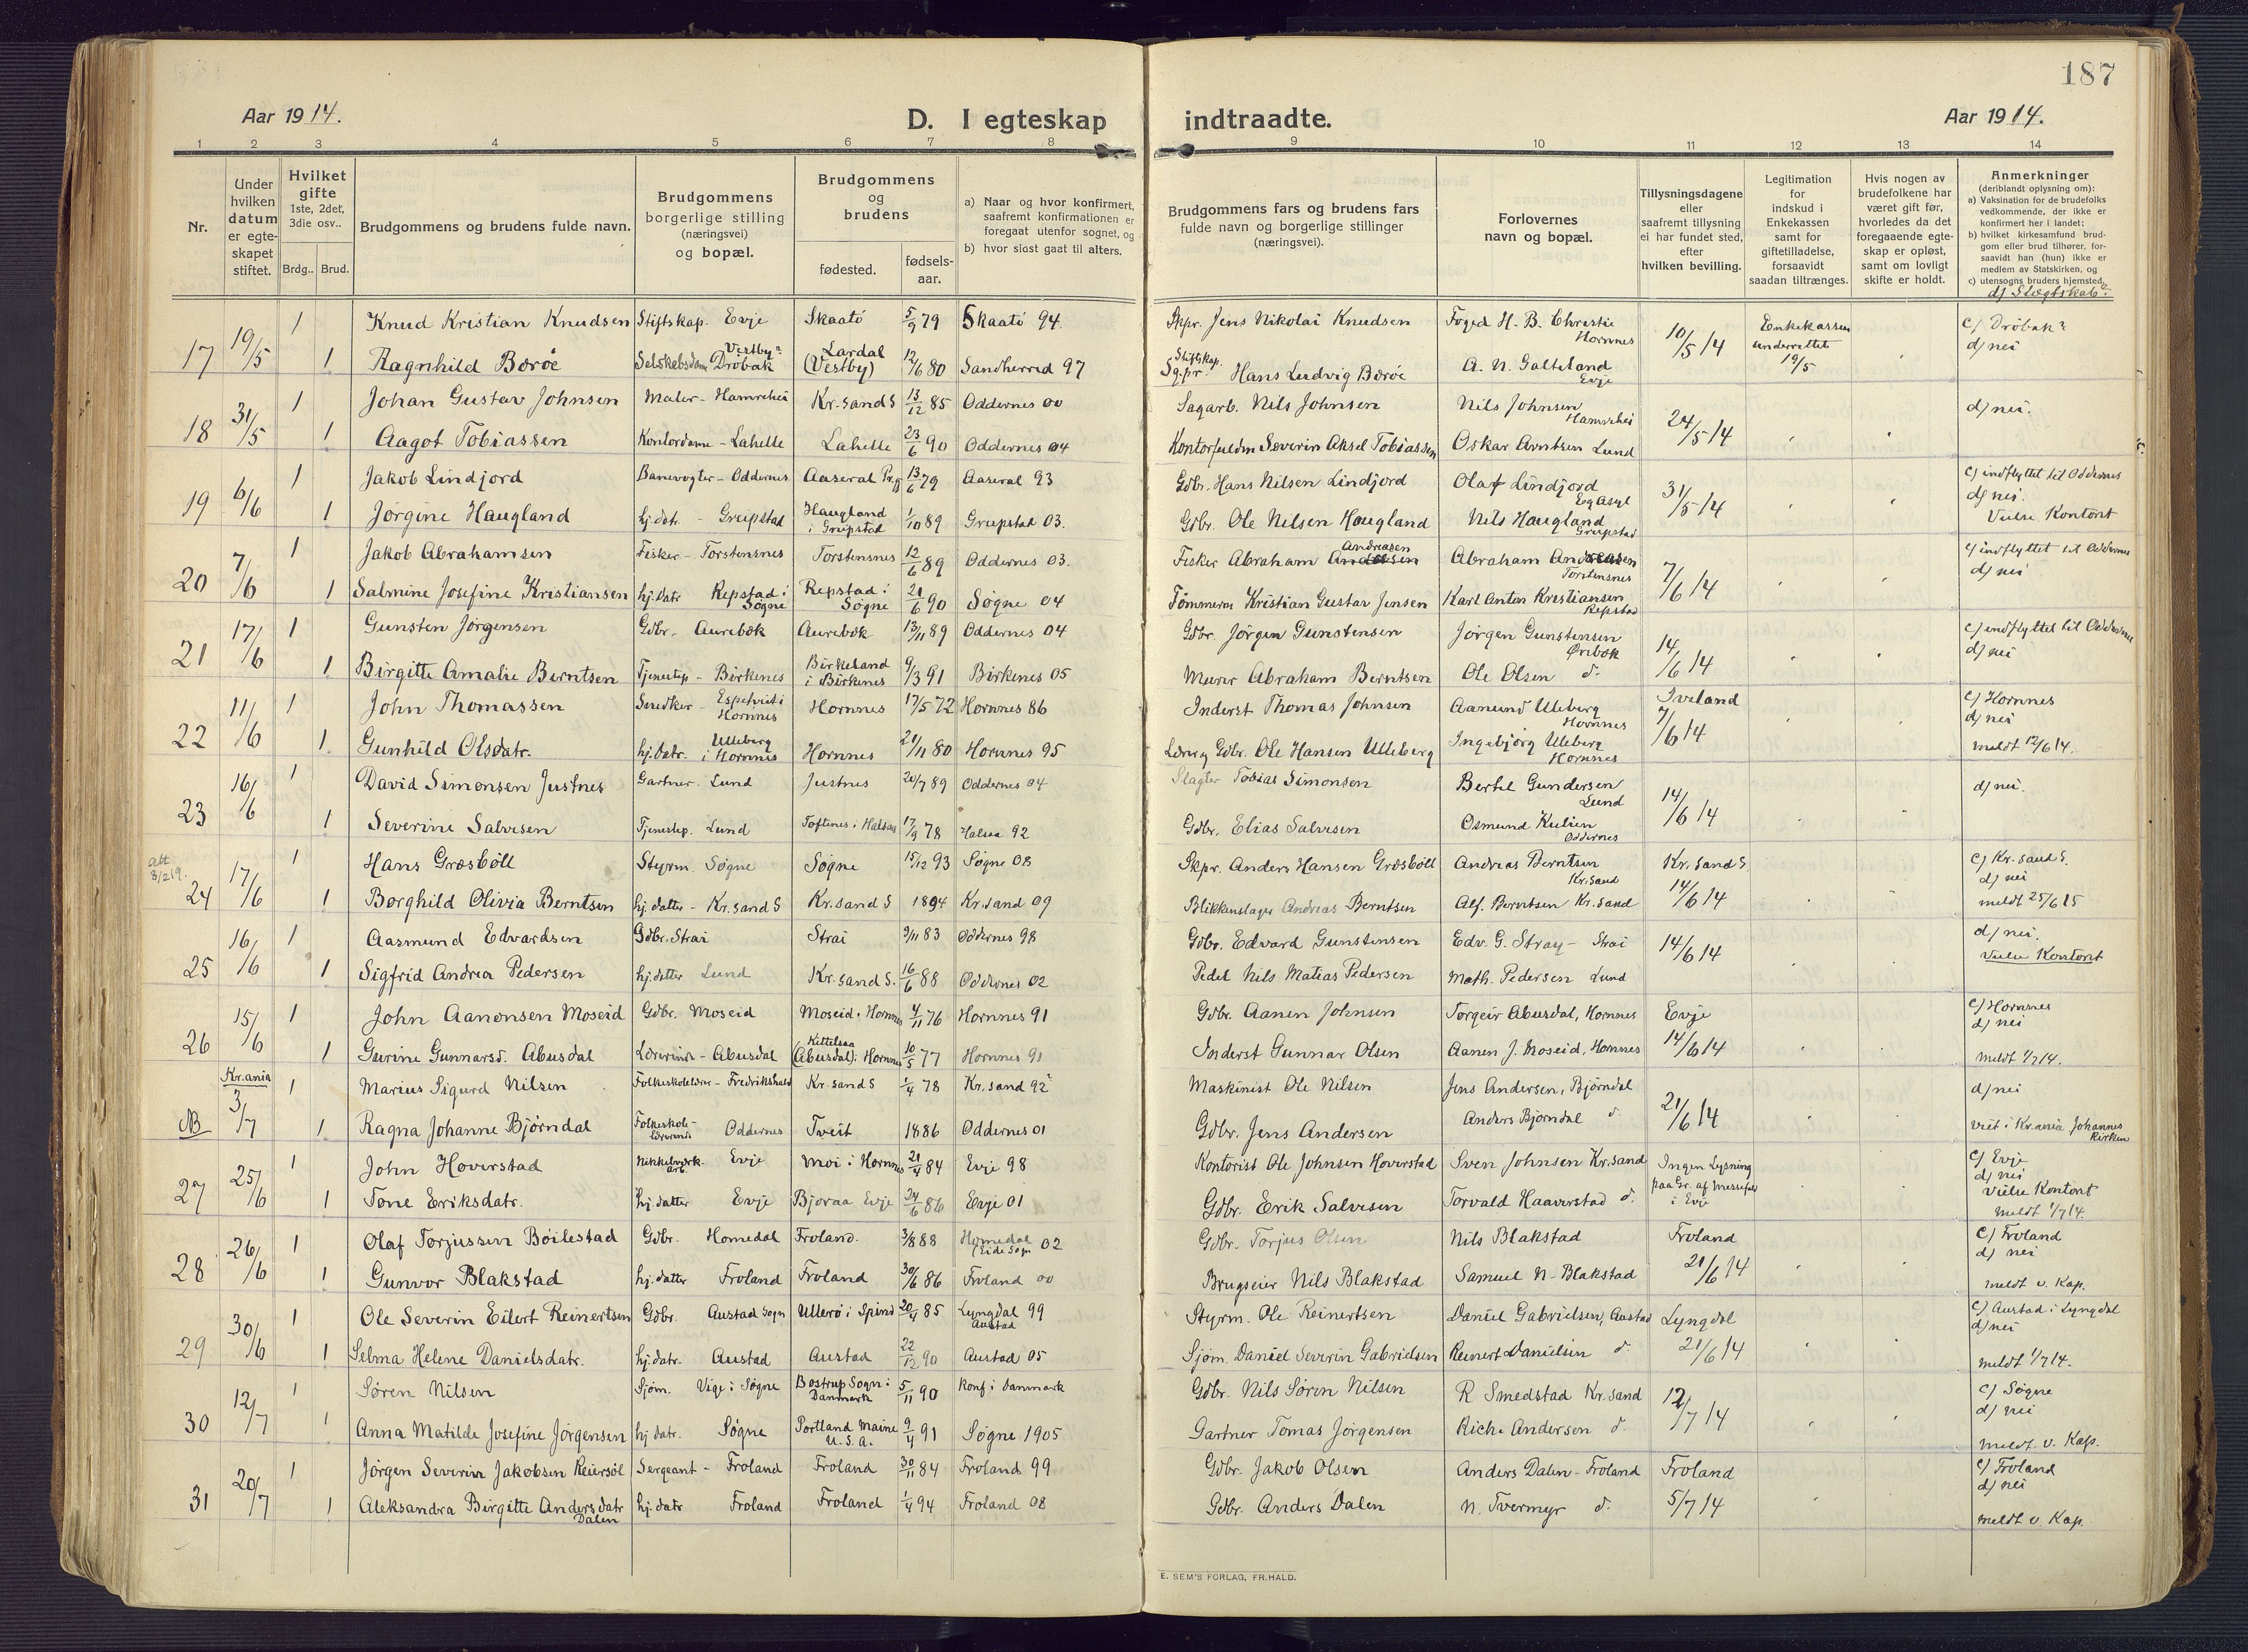 187
Aar 1914.
D. I egteskap indtraadte.
Aar 1914.
1 2 3 4 5 6 7 8 9 10 11 12 13 14
Nr.
Under hvilken datum er egteskapet stiftet.
Hvilket gifte 1ste, 2det, 3die osv..
Brdg.. Brud.
Brudgommens og brudens fulde navn.
Brudgommens borgerlige stilling (næringsvei) og bopæl.
Brudgommens og brudens
fødested. fødselsaar.
a) Naar og hvor konfirmert, saafremt konfirmationen er foregaat utenfor sognet, og
b) hvor sidst gaat til alters.
Brudgommens fars og brudens fars fulde navn og borgerlige stillinger (næringsvei).
Forlovernes navn og bopæl.
Tillysningsdagene eller saafremt tillysning ei har fundet sted, efter hvilken bevilling.
Legitimation for indskud i Enkekassen samt for giftetilladelse, forsaavidt saadan tiltrænges.
Hvis nogen av brudefolkene har været gift før, hvorledes da det foregaaende egteskap er opløst, samt om lovligt skifte er holdt.
Anmerkninger (deriblandt oplysning om):
a) Vaksination for de brudefolks vedkommende, der ikke er konfirmert her i landet;
b) hvilket kirkesamfund brudgom eller brud tilhører, forsaavidt han (hun) ikke er medlem av Statskirken, og
c) utensogns bruders hjemsted.
d) Slegtskab?
17 19/5 1 Knud Kristian Knudsen Stiftskap. Evje Skaatö 5/9 79 Skaatö 94. Skpr. Jens Nikolai Knudsen Foged H. B. Christie Hornnes 10/5 14 Enkekassen underrettet 19/5 c) Dröbak? d) nei
1 Ragnhild Böröe Selskabsdame Vestby? Dröbak Lardal (Vestby) 12/6 80 Sandherred 97 Stiftskap. Sg.pr. Hans Ludvig Böröe A. N. Galteland Evje
18 31/5 1 Johan Gustav Johnsen Maler - Hamrehei Kr.sand S 13/12 85 Oddernes 00 Sagarb. Nils Johnsen Nils Johnsen Hamrehei 24/5 14 d) nei.
1 Aagot Tobiassen Kontordame - Lahelle Lahelle 23/6 90 Oddernes 04 Kontorfuldm Severin Aksel Tobiassen Oskar Arntsen Lund
19 6/6 1 Jakob Lindjord Banevogter - Oddernes Aaseral 13/6 79 Aaseral 93 Gdbr. Hans Nilsen Lindjord Olaf Lindjord Eg Asyl 31/5 14 c) indflyttet til Oddernes d) nei. Vielse Kontort
1 Jörgine Haugland hj.datr. - Greipstad Haugland i Greipstad 1/10 89 Greipstad 03. Gdbr. Ole Nilsen Haugland Nils Haugland Greipstad
20 7/6 1 Jakob Abrahamsen Fisker - Torstensnes Torstensnes 12/6 89 Oddernes 03. Fisker Abraham Andreasen Abraham Andreasen Torstensnes 7/6 14 c) indflyttet til Oddernes d) nei
1 Salmine Josefine Kristiansen hj.datr Repstad i Søgne Repstad i Søgne 21/6 90 Søgne 04 Tömmerm Kristian Gustav Jensen Karl Anton Kristiansen Repstad
21 17/6 1 Gunsten Jörgensen Gdbr. Aurebök Aurebök 13/11 89 Oddernes 04 Gdbr. Jörgen Gunstensen Jörgen Gunstensen Örebök 14/6 14 c) indflyttet til Oddernes d) nei
1 Birgitte Amalie Berntsen Tjenestep - Birkenes Birkeland i Birkenes 9/3 91 Birkenes 05 Murer Abraham Berntsen Ole Olsen d.
22 11/6 1 John Thomassen Snedker - Espetveit i Hornnes Hornnes 17/5 72 Hornnes 86 Inderst Thomas Johnsen Aanund Uleberg Hornnes Iveland 7/6 14 c) Hornnes d) nei meldt 12/6 14.
1 Gunhild Olsdatr. hj.datr. Uleberg i Hornnes Hornnes 21/11 80 Hornnes 95 Lærer og Gdbr. Ole Hansen Uleberg Ingebjörg Uleberg Hornnes
23 16/6 1 David Simonsen Justnes Gartner. Lund Justnes 20/7 89 Oddernes 04 Slagter Tobias Simonsen Bertel Gundersen Lund 14/6 14 d) nei.
1 Severine Salvesen Tjenestep. Lund Toftenes i Halsaa 17/9 78 Halsaa 92 Gdbr. Elias Salvesen Osmund Kulien Oddernes
att 8/2 19.
24 17/6 1 Hans Græsböll Styrm. Søgne Søgne 15/12 93 Søgne 08 Skpr. Anders Hansen Græsböll Andreas Berntsen Kr.sand Kr.sand S. 14/6 14 c) Kr.sand S. d) nei meldt 25/6 15
1 Borghild Olivia Berntsen hj.datter - Kr.sand S Kr.sand S 1894 Kr.sand 09 Blikkenslager Andreas Berntsen Alf. Berntsen Kr.sand
25 16/6 1 Aasmund Edvardsen Gdbr. Strai Strai 9/11 83 Oddernes 98 Gdbr. Edvard Gunstensen Edv. G. Stray - Strai 14/6 14 d) nei. Vielse Kontort
1 Sigfrid Andrea Pedersen hj.datter Lund Kr.sand S. 16/6 88 Oddernes 02 Pedel Nils Matias Pedersen Math. Pedersen Lund
26 15/6 1 John Aanonsen Moseid Gdbr. Moseid Moseid i Hornnes 4/11 76 Hornnes 91 Gdbr. Aanen Johnsen Torgeir Abusdal, Hornnes Evje 14/6 14 c) Hornnes d) nei meldt 1/7 14.
1 Gurine Gunnarsd. Abusdal Lærerinde - Abusdal Kittelsaa (Abusdal) i Hornnes 10/5 77 Hornnes 91 Inderst Gunnar Olsen Aanen J. Moseid, Hornnes
NB Kr.ania 3/7 1 Marius Sigurd Nilsen Folkeskolelærer - Fredrikshald Kr.sand S 1/4 78 Kr.sand 92? Maskinist Ole Nilsen Jens Andersen, Bjørndal 21/6 14 d) nei viet i Kr.ania Johannes Kirken
1 Ragna Johanne Bjørndal Folkeskole-lærerinde Oddernes Tveit 1886 Oddernes 01 Gdbr. Jens Andersen Anders Bjørndal d.
27 25/6 1 John Hoverstad Nikkelverk. arb. Evje Moi i Hornnes 21/4 84 Evje 98 Kontorist Ole Johnsen Hoverstad Sven Johnsen Kr.sand Ingen Lysning paa Gr. af Messefald i Evje c) Evje d) nei Vielse Kontort meldt 1/7 14.
1 Tone Eriksdatr. hj.datter Evje Bjoraa Evje 24/6 86 Evje 01 Gdbr. Erik Salvesen Torvald Haaverstad d.
28 26/6 1 Olaf Torjussen Böilestad Gdbr. Homedal Froland. 3/8 88 Homedal (Eide Sogn 02 Gdbr. Torjus Olsen Nils Blakstad Froland 21/6 14 c) Froland d) nei meldt v. Kap.
1 Gunvor Blakstad hj.datter Froland Froland 30/6 86 Froland 00 Brugseier Nils Blakstad Samuel N. Blakstad
29 30/6 1 Ole Severin Eilert Reinertsen Gdbr. Austad Sogn Ullerö i Spind 20/4 85 Lyngdal 99 Austad Styrm. Ole Reinertsen Daniel Gabrielsen, Austad Lyngdal 21/6 14 c) Austad i Lyngdal d) nei meldt 1/7 14.
1 Selma Helene Danielsdatr. hj.datr. Austad Austad 22/12 90 Austad 05 Sjøm. Daniel Severin Gabrielsen Reinert Danielsen d
30 12/7 1 Søren Nilsen Sjøm. Vige i Søgne Bostrup Sogn i Danmark 5/11 90 Konf i Danmark Gdbr. Nils Søren Nilsen R Smedstad Kr.sand 12/7 14 c) Søgne d) nei meldt v. Kap.
1 Anna Matilde Josefine Jörgensen hj.datr. Søgne Portland Maine U.S.A. 9/4 91 Søgne 1905 Gartner Tomas Jörgensen Rich. Andersen d.
31 20/7 1 Jörgen Severin Jakobsen Reiersöl Sergeant - Froland Froland 30/11 84 Froland 99 Gdbr. Jakob Olsen Anders Dalen - Froland Froland 5/7 14 c) Froland d) nei meldt v. Kap.
1 Aleksandra Birgitte Andersdatr Dalen hj.datr Froland Froland 1/4 94 Froland 08 Gdbr. Anders Dalen N. Tvermyr d.
E. SEM'S FORLAG, FR.HALD.